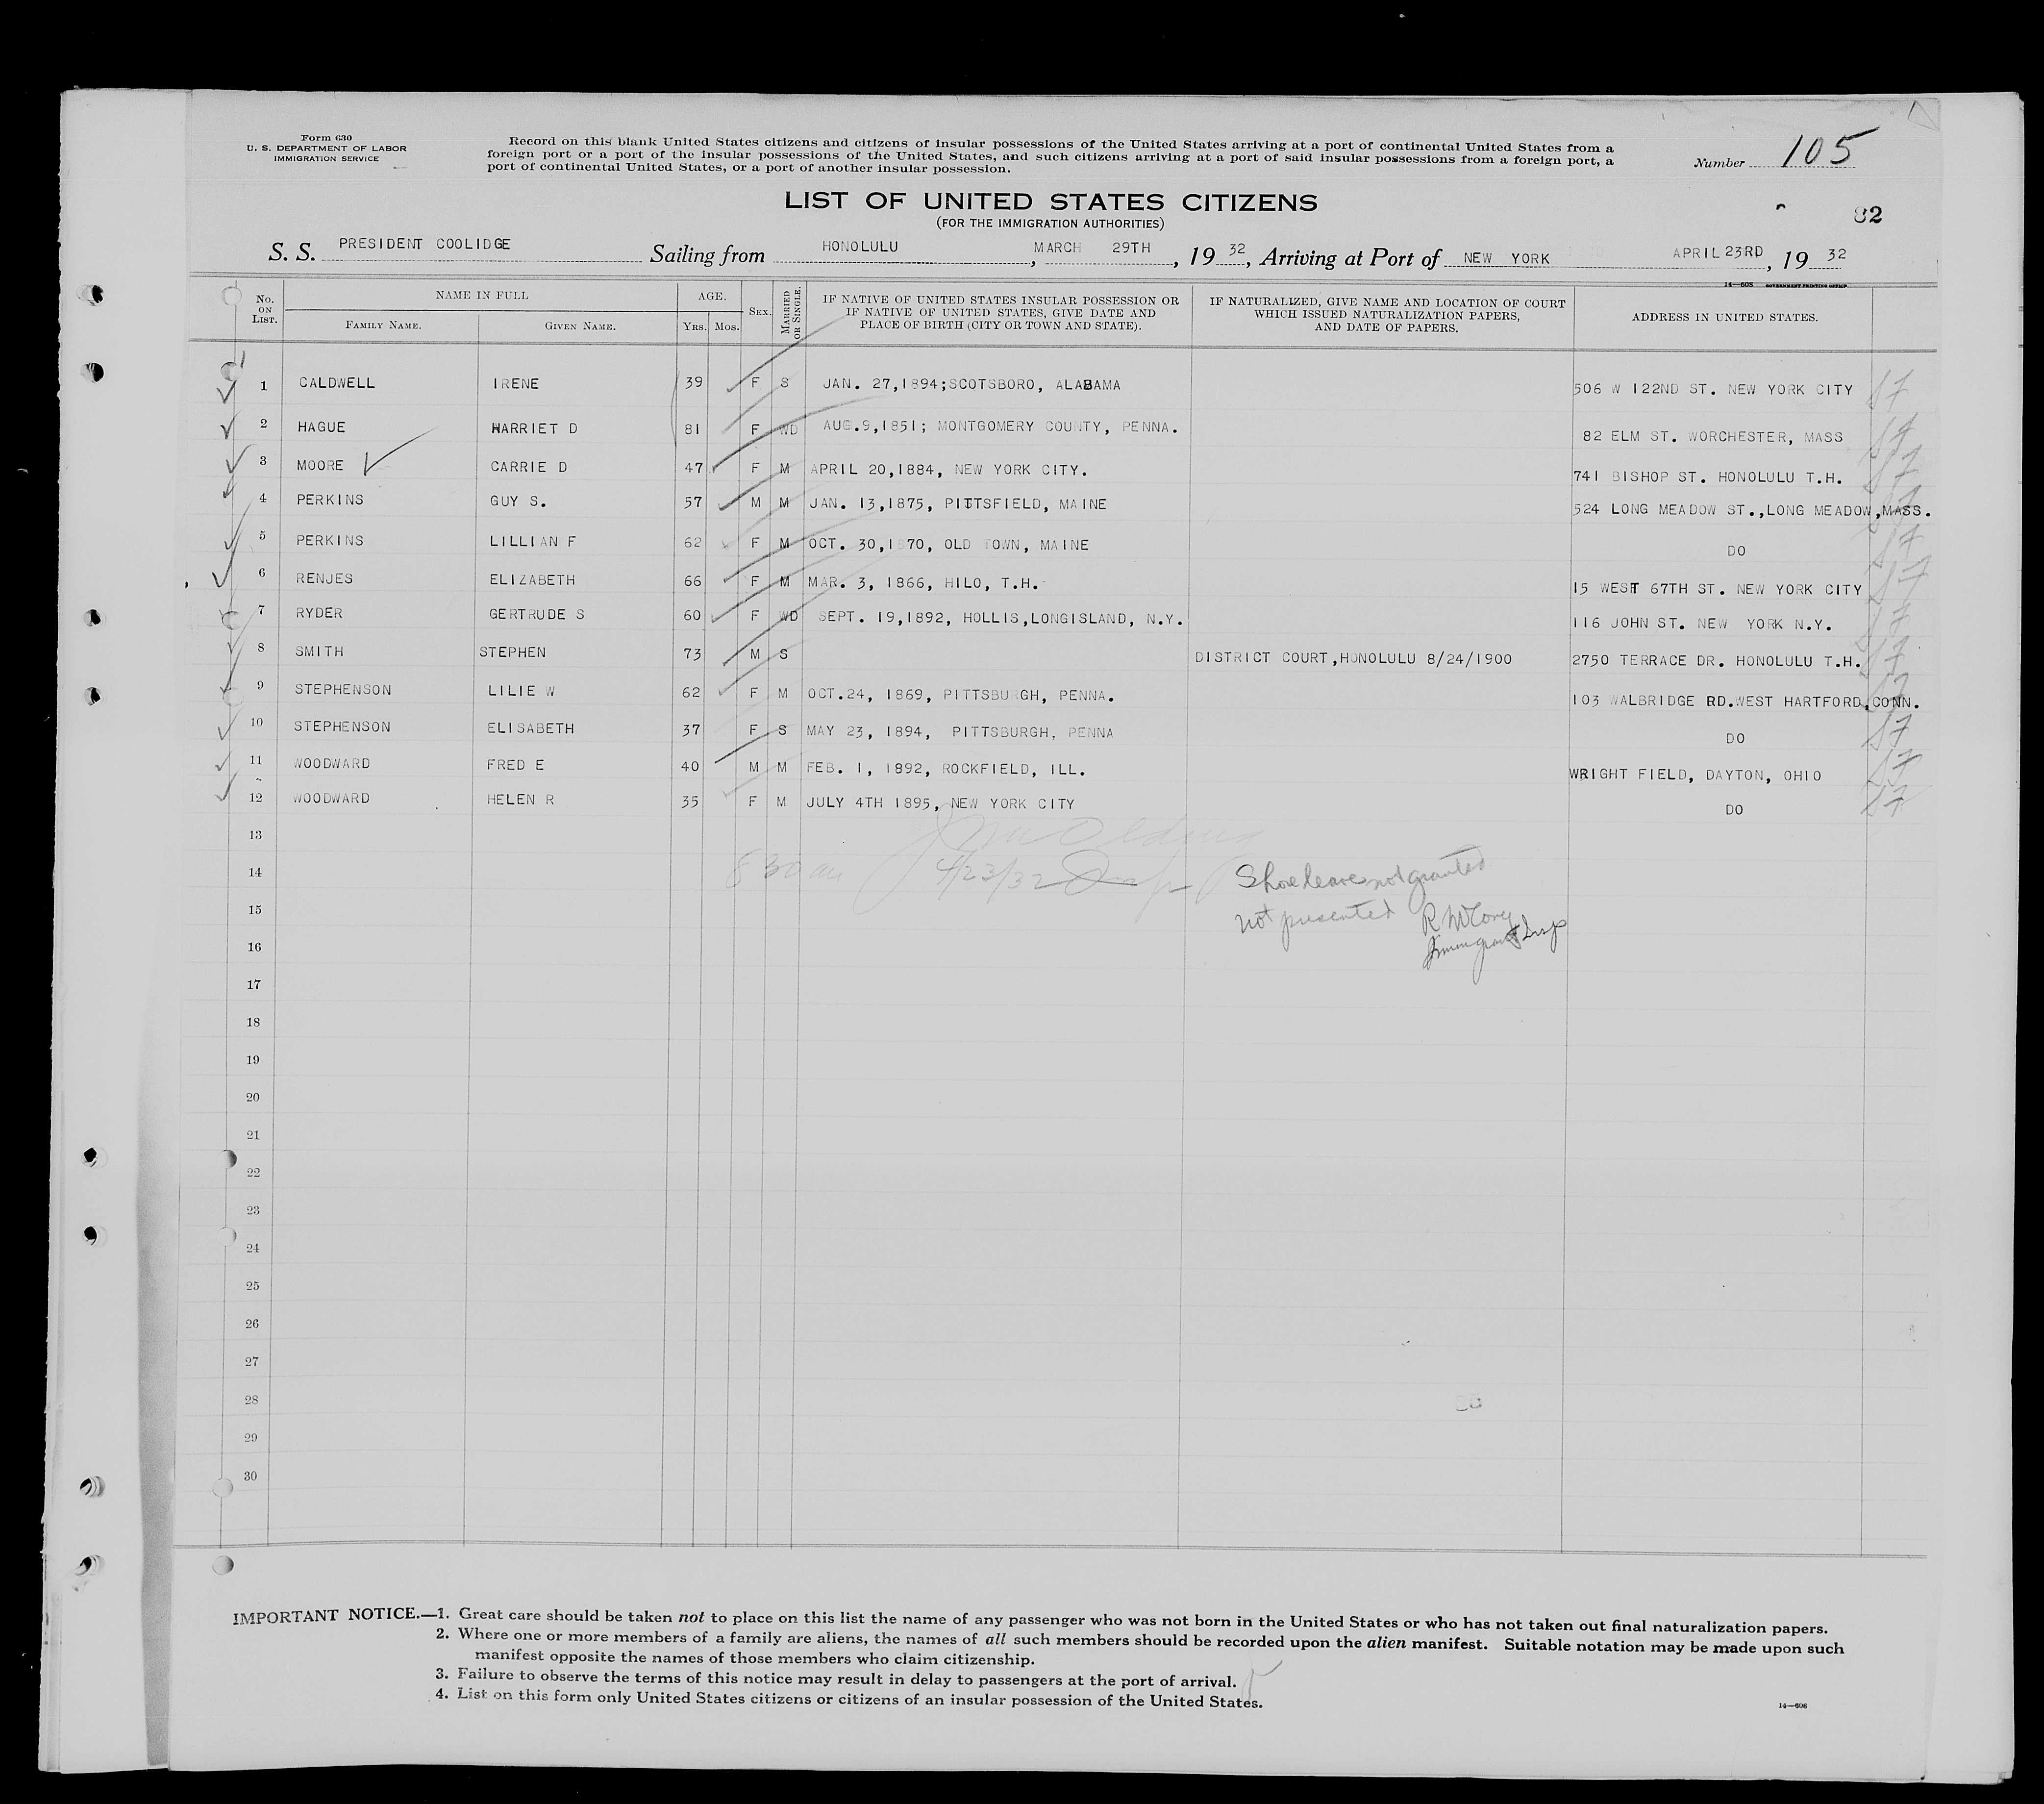 Form 630
U. S. DEPARTMENT OF LABOR
IMMIGRATION SERVICE
Record on this blank United States citizens and citizens of insular possessions of the United States arriving at a port of continental United States from a
foreign port or a port of the insular possessions of the United States, and such citizens arriving at a port of said insular possessions from a foreign port, a
port of continental United States, or a port of another insular possession.
Number 105
LIST OF UNITED STATES CITIZENS
(FOR THE IMMIGRATION AUTHORITIES)
82
S. S. PRESIDENT COOLIDGE Sailing from HONOLULU, MARCH 29TH, 19 32, Arriving at Port of NEW YORK APRIL 23RD, 19 32
14—608 GOVERNMENT PRINTING OFFICE
No. ON LIST. NAME IN FULL FAMILY NAME. GIVEN NAME. AGE. YRS. MOS. SEX. MARRIED OR SINGLE. IF NATIVE OF UNITED STATES INSULAR POSSESSION OR IF NATIVE OF UNITED STATES, GIVE DATE AND PLACE OF BIRTH (CITY OR TOWN AND STATE). IF NATURALIZED, GIVE NAME AND LOCATION OF COURT WHICH ISSUED NATURALIZATION PAPERS, AND DATE OF PAPERS. ADDRESS IN UNITED STATES.
1 CALDWELL IRENE 39 F S JAN. 27,1894;SCOTSBORO, ALABAMA 506 W 122ND ST. NEW YORK CITY
2 HAGUE HARRIET D 81 F WD AUG.9,1851; MONTGOMERY COUNTY, PENNA. 82 ELM ST. WORCHESTER, MASS
3 MOORE CARRIE D 47 F M APRIL 20,1884, NEW YORK CITY. 741 BISHOP ST. HONOLULU T.H.
4 PERKINS GUY S. 57 M M JAN. 13,1875, PITTSFIELD, MAINE 524 LONG MEADOW ST.,LONG MEADOW,MASS.
5 PERKINS LILLIAN F 62 F M OCT. 30,1870, OLD TOWN, MAINE DO
6 RENJES ELIZABETH 66 F M MAR. 3, 1866, HILO, T.H. 15 WEST 67TH ST. NEW YORK CITY
7 RYDER GERTRUDE S 60 F WD SEPT. 19,1892, HOLLIS,LONGISLAND, N.Y. 116 JOHN ST. NEW YORK N.Y.
8 SMITH STEPHEN 73 M S DISTRICT COURT,HONOLULU 8/24/1900 2750 TERRACE DR. HONOLULU T.H.
9 STEPHENSON LILIE W 62 F M OCT.24, 1869, PITTSBURGH, PENNA. 103 WALBRIDGE RD.WEST HARTFORD,CONN.
10 STEPHENSON ELISABETH 37 F S MAY 23, 1894, PITTSBURGH, PENNA DO
11 WOODWARD FRED E 40 M M FEB. 1, 1892, ROCKFIELD, ILL. WRIGHT FIELD, DAYTON, OHIO
12 WOODWARD HELEN R 35 F M JULY 4TH 1895, NEW YORK CITY DO
13
14 8 30 am 4/23/32 Insp Shore leave not granted
15 not presented
16 Immigrant Insp
17
18
19
20
21
22
23
24
25
26
27
28
29
30
IMPORTANT NOTICE.—1. Great care should be taken not to place on this list the name of any passenger who was not born in the United States or who has not taken out final naturalization papers.
2. Where one or more members of a family are aliens, the names of all such members should be recorded upon the alien manifest. Suitable notation may be made upon such
manifest opposite the names of those members who claim citizenship.
3. Failure to observe the terms of this notice may result in delay to passengers at the port of arrival.
4. List on this form only United States citizens or citizens of an insular possession of the United States.
14—608